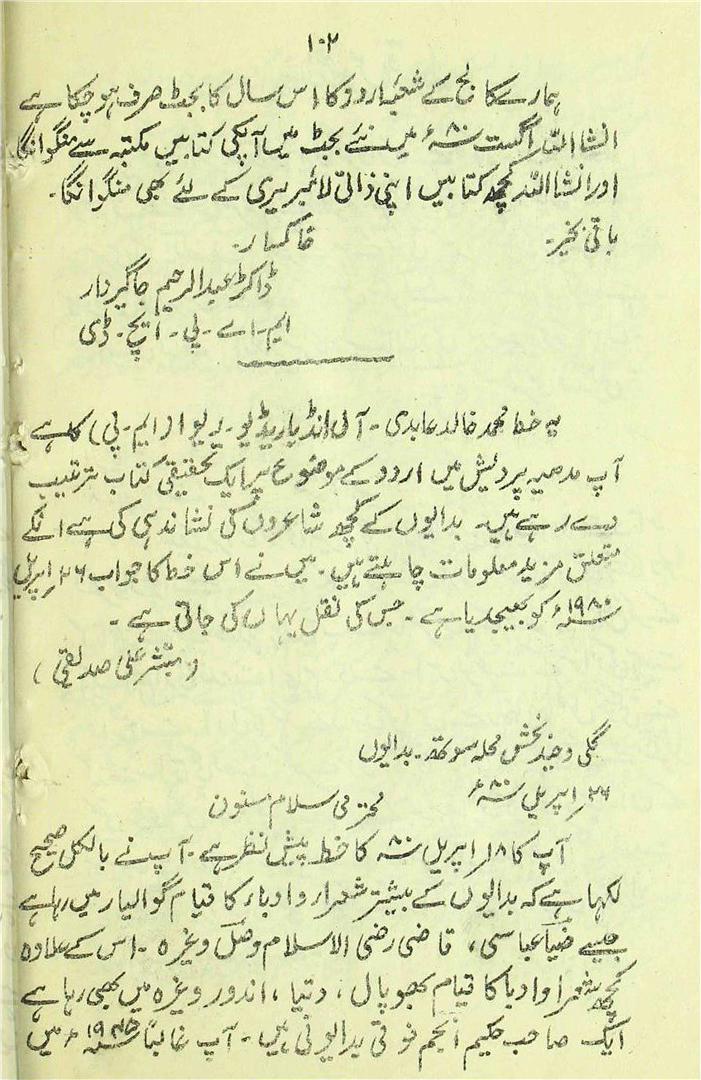 ۱۰۲
ہمارے کالج کے شعبۂ اردو کا اس سال کا بجٹ صرف ہو چکا ہے
انشااللہ اگست ۸۰ء میں نئے بجٹ میں آپکی کتابیں مکتبہ سے منگوانگا
اور انشااللہ کچھ کتابیں اپنی ذاتی لائبریری کے لئے بھی منگوانگا۔
باقی بخیر۔
خاکسار۔
ڈاکٹر عبدالرحیم جاگیردار
ایم۔ اے۔ پی۔ ایچ۔ ڈی
یہ خط محمد خالد عابدی۔ آل انڈیا ریڈیو۔ (ایم۔ پی) کا ہے
آپ مدھیہ پردیش میں اردو کے موضوع پر ایک تحقیقی کتاب ترتیب
دے رہے ہیں۔ بدایوں کے کچھ شاعروں کی نشاندہی کی ہے انکے
متعلق مزید معلومات چاہتے ہیں۔ میں نے اس خط کا جواب ۲۶ اپریل
۱۹۸۰ء کو بھیجدیا ہے۔ جس کی نقل یہاں کی جاتی ہے۔
(مبشر علی صدیقی)
گلی محلہ سوتھ۔ بدایوں
۲۶ اپریل ۸۰ء
محترمی سلام مسنون
آپ کا ۱۸ اپریل ۸۰ء کا خط پیش نظر ہے۔ آپ نے بالکل صحیح
لکھا ہے کہ بدایوں کے بیشتر شعرا و ادباء کا قیام گوالیار میں رہا ہے
جیسے ضیا عباسی، قاضی رضی الاسلام وصل وغیرہ۔ اس کے علاوہ
کچھ شعرا و ادبا کا قیام بھوپال، دتیا، اندور وغیرہ میں بھی رہا ہے
ایک صاحب حکیم انجم فوقی بدایونی ہیں۔ آپ غالباً میں